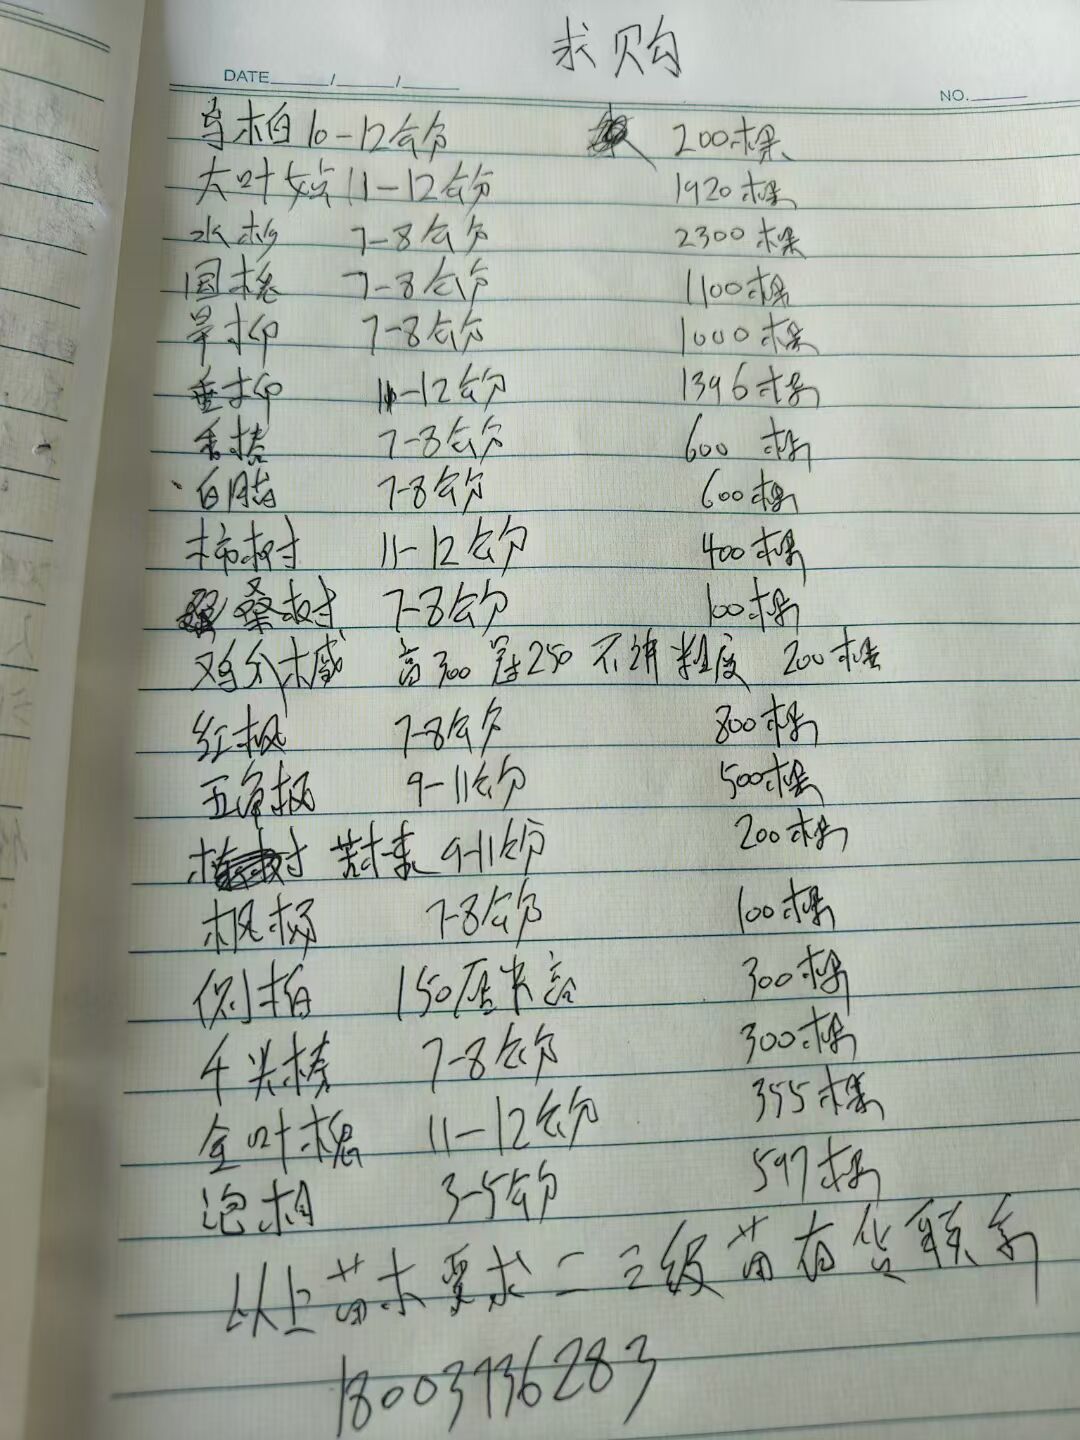 求购
DATE / /
NO.
乌柏 10-12公分 200棵
大叶女贞 11-12公分 1920棵
水杉 7-8公分 2300棵
国槐 7-8公分 1100棵
旱柳 7-8公分 1000棵
垂柳 11-12公分 1396棵
香椿 7-8公分 600棵
白腊 7-8公分 600棵
柿树 11-12公分 400棵
桑树 7-8公分 100棵
鸡爪槭 高300 冠250 不讲粒度 200棵
红枫 7-8公分 800棵
五角枫 9-11公分 500棵
苦楝 9-11公分 200棵
枫杨 7-8公分 100棵
侧柏 150厘米高 300棵
千头椿 7-8公分 300棵
金叶槐 11-12公分 355棵
泡桐 3-5公分 597棵
以上苗木要求二三级苗有货联系
18003736283